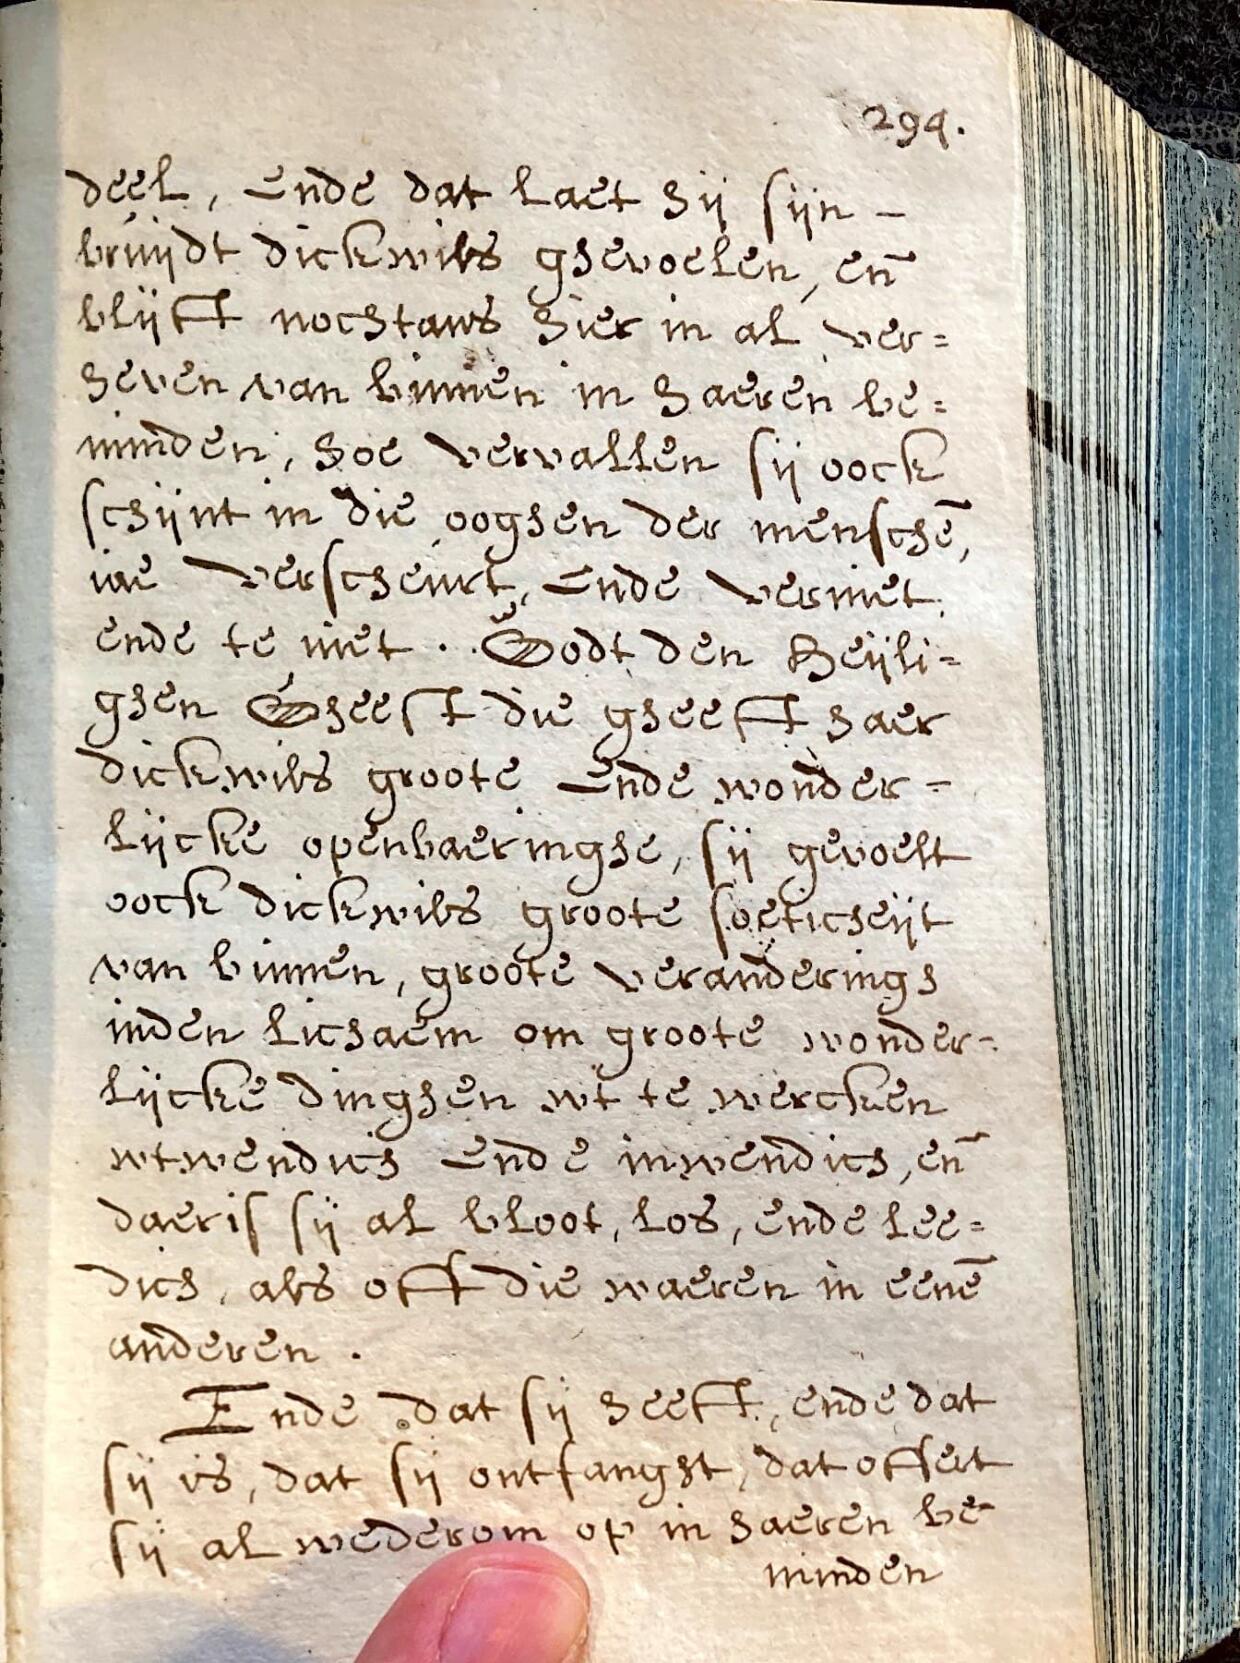 294.
deel, ende dat laet hij sijn -
bruijdt dickwils ghevoelen, eñ
blijft nochtans hier in al ver=
heven van binnen in haeren be=
minden, hoe vervallen sij oock
schijnt in die ooghen der menschē,
iae verscheurt, ende verniet
ende te niet. Godt den Heijli=
ghen Gheest die gheeft haer
dickwils groote ende wonder-
lijcke openbaeringhe, sij gevoelt
oock dickwils groote soeticheijt
van binnen, groote veranderingh
inden lichaem om groote wonder-
lijcke dinghen wt te wercken
wtwendich ende inwendich, eñ
daer is sij al bloot, los, ende lee=
dich, als oft die waeren in eenē
anderen.
Ende dat sij heeft, ende dat
sij is, dat sij ontfanght, dat offert
sij al wederom op in haeren be-
minden